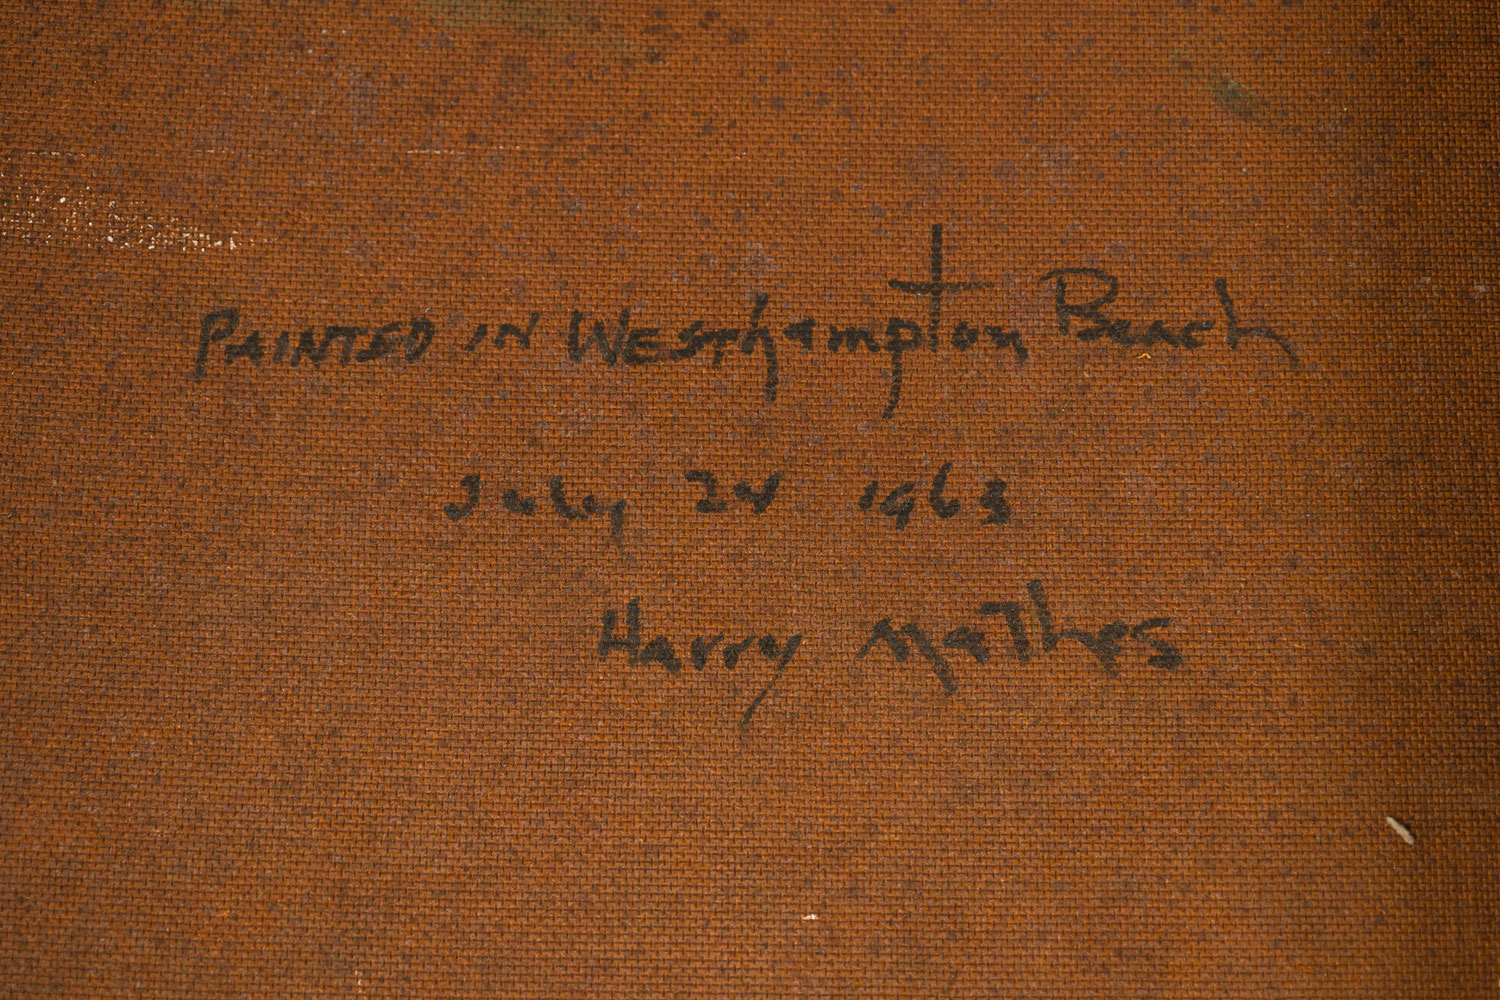 PAINTED IN WESThampton Beach
July 24 1963
Harry Mathes